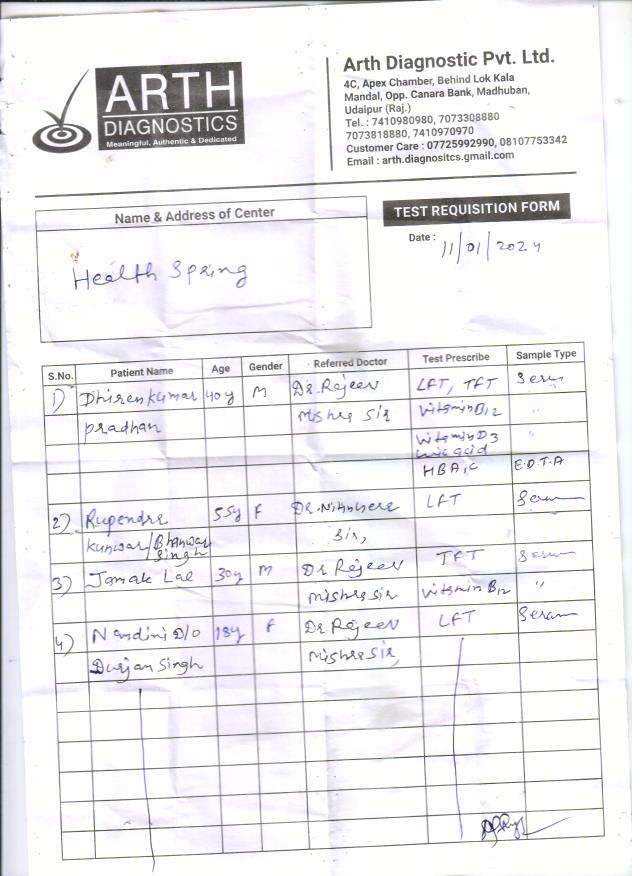 ARTH
DIAGNOSTICS
Meaningful, Authentic & Dedicated
Arth Diagnostic Pvt. Ltd.
4C, Apex Chamber, Behind Lok Kala
Mandal, Opp. Canara Bank, Madhuban,
Udaipur (Raj.)
Tel. : 7410980980, 7073308880
7073818880, 7410970970
Customer Care : 07725992990, 08107753342
Email : arth.diagnositcs.gmail.com
Name & Address of Center
TEST REQUISITION FORM
Date : 11/01/2024
Health Spring
S.No. Patient Name Age Gender Referred Doctor Test Prescribe Sample Type
1) Dhiren kumar 40y M Dr. Rajeev LFT, TFT Serum
pradhan Mishra Sir Vitamin B12 "
Vitamin D3 "
uric acid
HBA1C E.D.T.A
2) Rupendra 55y F Dr. LFT Serum
kunwar/Bhanwar Sir,
Singh
3) Jamak Lal 30y M Dr Rajeev TFT Serum
Mishra Sir Vitamin B12 "
4) Nandini D/o 18y F Dr Rajeev LFT Serum
Durjan Singh Mishra Sir,